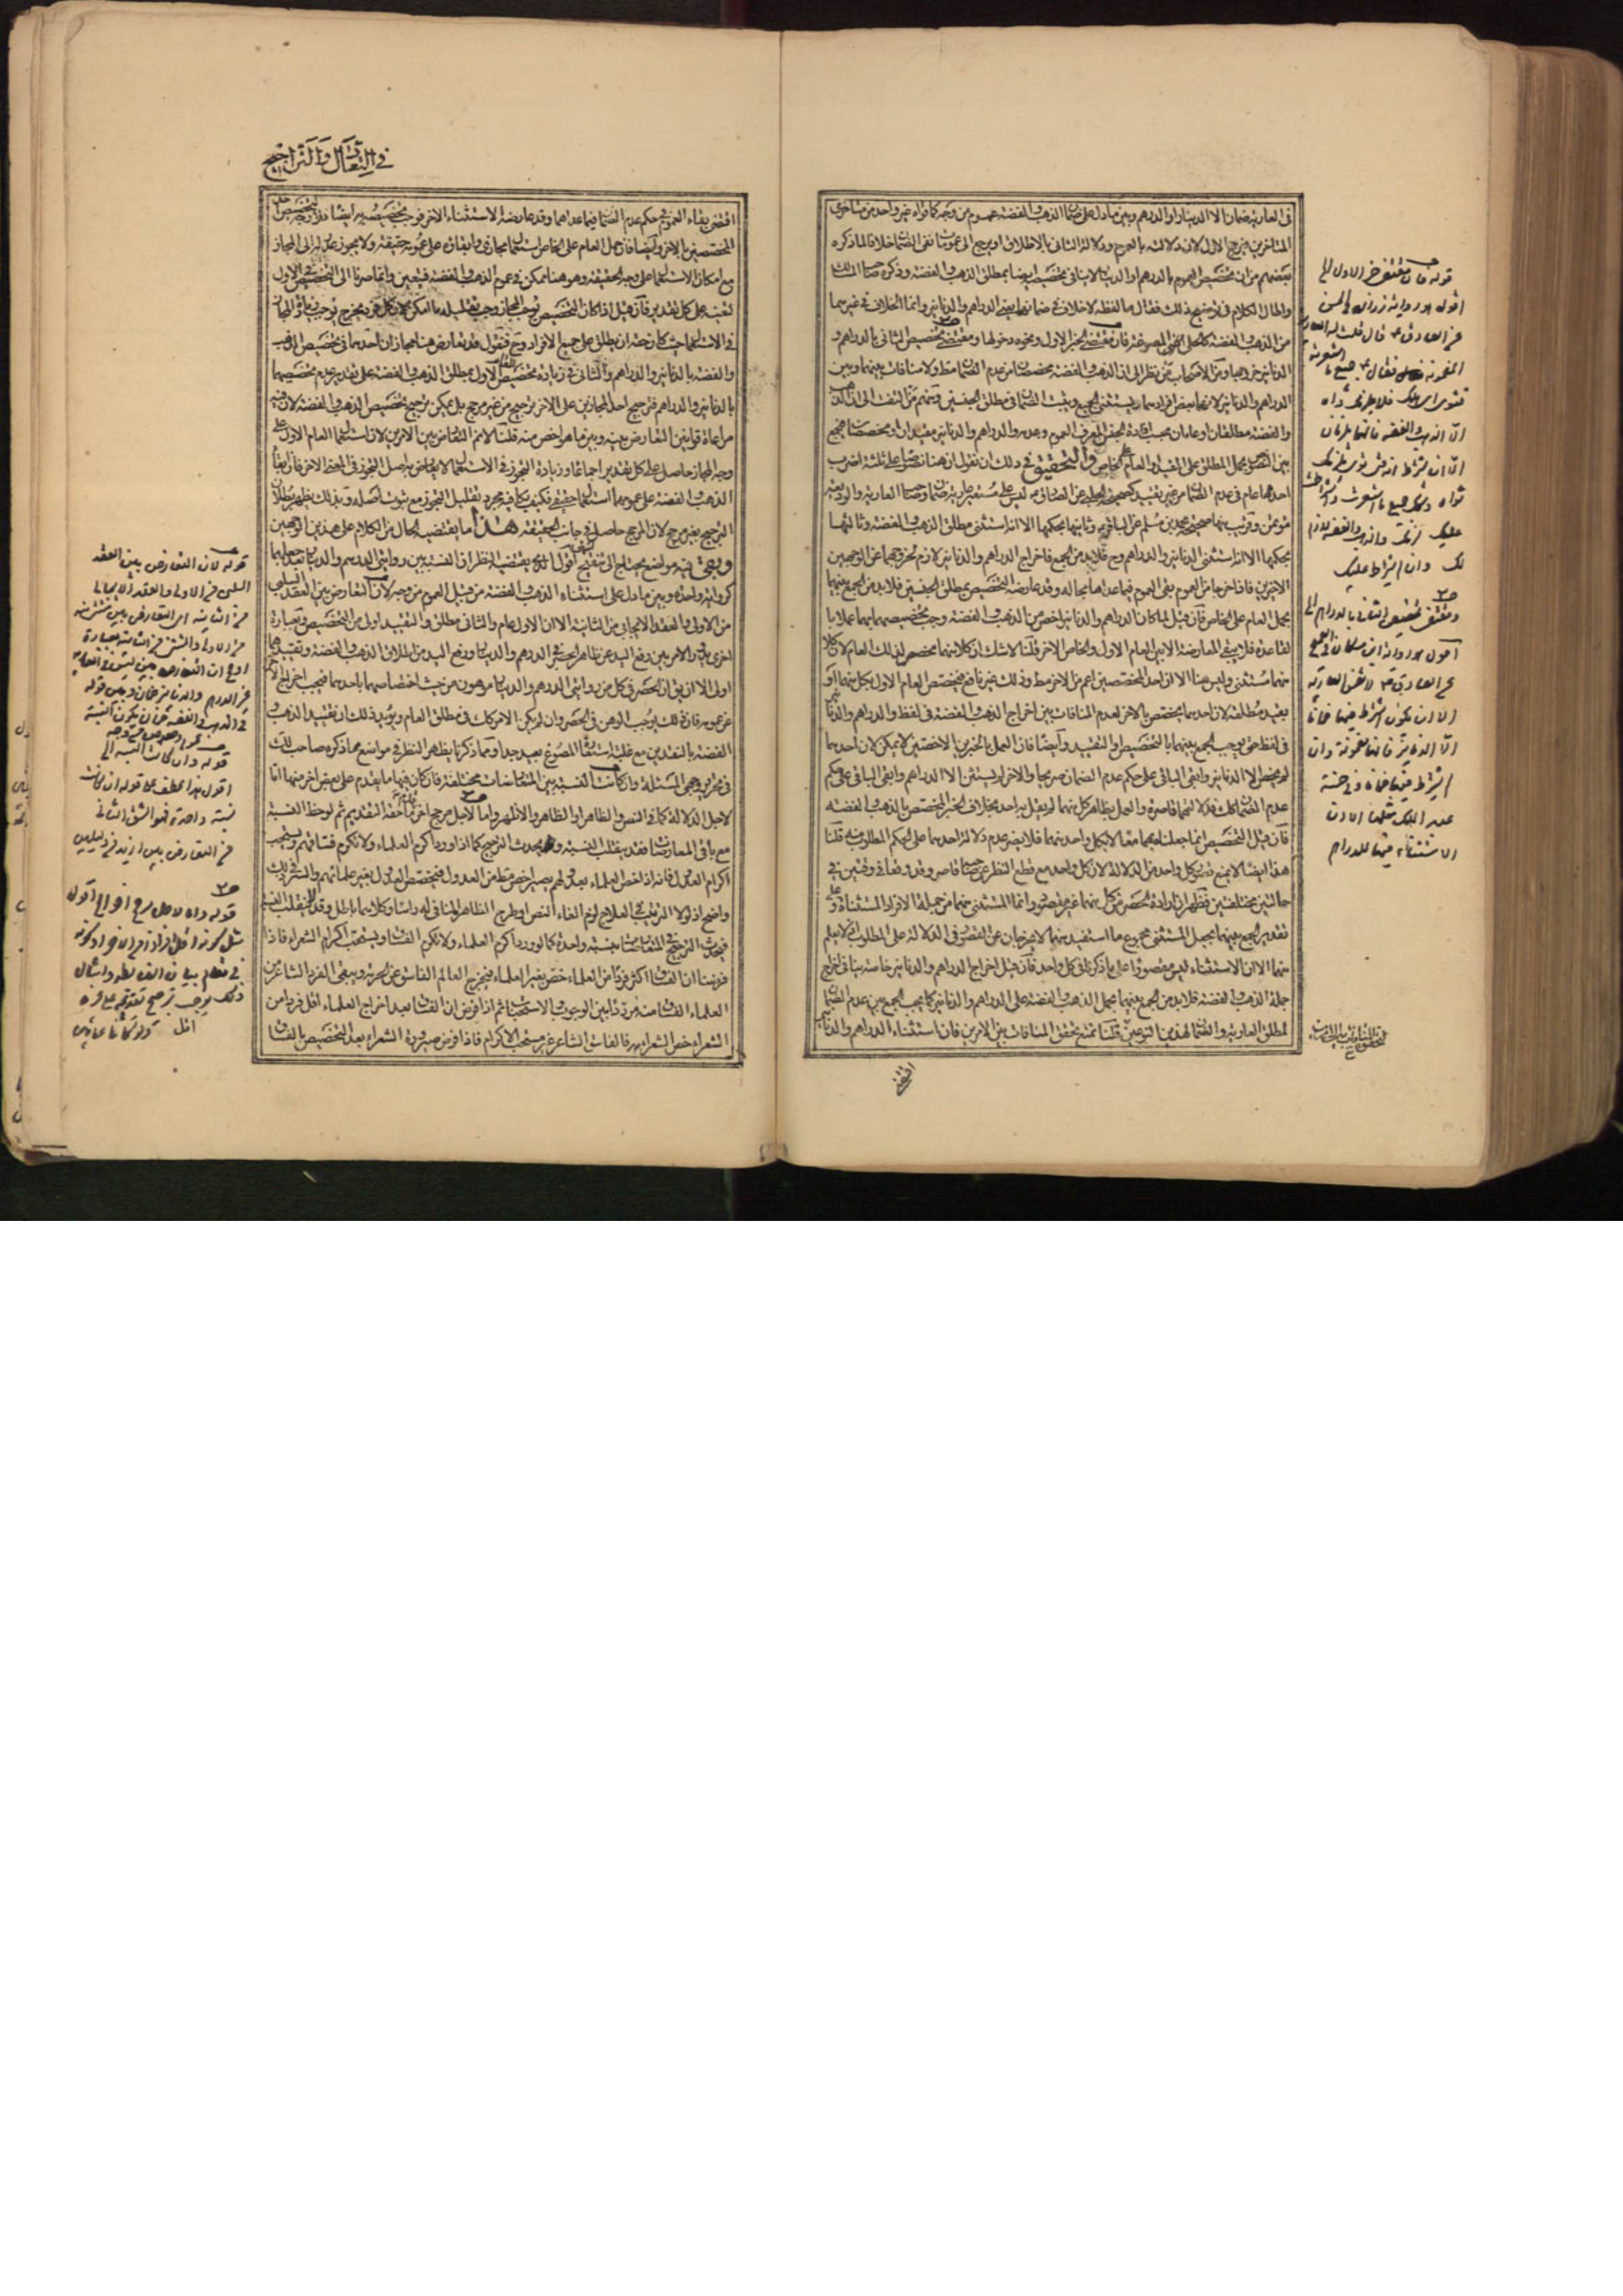 في العارية ضمان الا الدينار او الدرهم وبين ما دل على ضمان الذهب والفضة عموم من وجه كما قواه غير واحد من متأخري
المتأخرين فيرجح الاول لان دلالته بالعموم ودلالة الثاني بالاطلاق او يرجع الى عمومات نفي الضمان خلافا لما ذكره
بعضهم من ان تخصيص العموم بالدرهم او الدينار لا ينافي تخصيصه ايضا بمطلق الذهب والفضة وذكره صاحب المسالك
واطال الكلام في توضيح ذلك فقال ما لفظه لا خلاف في ضمانهما يعني الدراهم والدنانير وانما الخلاف في غيرهما
من الذهب والفضة كالحلي المصوغة فان مقتضى الخبر الاول ونحوه دخولها ومقتضى تخصيص الثاني بالدراهم و
الدنانير خروجها ومن الاصحاب من نظر الى ان الذهب والفضة مخصصان من عدم الضمان مطلقا ولا منافاة بينهما وبين
الدراهم والدنانير لانهما بعض افرادهما ويستثنى الجميع ويثبت الضمان في مطلق الجنسين ومنهم من التفت الى ان الذهب
والفضة مطلقان او عامان بحسب افادة الجنس المعرف العموم وعدمه والدراهم والدنانير مقيدان او مخصصان فيجمع
بين النصوص بحمل المطلق على المقيد او العام على الخاص والتحقيق في ذلك ان نقول ان هنا نصوصا على ثلثة اضرب
احدها عام في عدم الضمان من غير تقييد كصحيحة الحلبي عن الصادق ليس على مستعير عارية ضمان وصاحب العارية والوديعة
مؤتمن وقريب منها صحيحة محمد بن مسلم عن الباقر وثانيها بحكمها الا انه استثنى مطلق الذهب والفضة وثالثها
بحكمها الا انه استثنى الدنانير والدراهم وح فلا بد من الجمع فاخراج الدراهم والدنانير لازم لخروجهما عن الوجهين
الاخيرين فاذا خرجا من العموم بقي العموم فيما عداهما بحاله وقد عارضه التخصيص بمطلق الجنسين فلا بد من الجمع بينهما
بحمل العام على الخاص فان قيل لما كان الدراهم والدنانير اخص من الذهب والفضة وجب تخصيصهما بهما عملا با
لقاعدة فلا يبقى المعارضة الا بين العام الاول والخاص الاخير قلنا لا شك ان كلا منهما مخصص لذلك العام لان كلا
منهما مستثنى وليس هنا الا ان احد المخصصين اعم من الاخر مطلقا وذلك غير مانع فيخصص العام الاول بكل منهما او
يقيد مطلقه لان احدهما يخصص بالاخر لعدم المنافاة بين اخراج الذهب والفضة في لفظ والدراهم والدنانير
في لفظ حتى يوجب الجمع بينهما بالتخصيص او التقييد وايضا فان العمل بالخبرين الاخصين لا يمكن لان احدهما
لم يخص الا الدنانير وابقى الباقي على حكم عدم الضمان صريحا والاخر لم يستثن الا الدراهم وابقى الباقي على حكم
عدم الضمان كذلك فدلالتهما قاصرة والعمل بظاهر كل منهما لم يقل به احد بخلاف الخبر المخصص بالذهب والفضة
فان قيل التخصيص انما جعلناه بهما معا لا بكل واحد منهما فلا يضر عدم دلالة احدهما على الحكم المطلوب منه قلنا
هذا ايضا لا يمنع قصور كل واحد من الدلالة لان كل واحد مع قطع النظر عن صاحبه قاصر وقد وقعا في وقتين في
حالتين مختلفتين فظهر ان ارادة الحصر من كل منهما غير مقصود وانما المستثنى منهما من جملة الافراد المستثناة وعلى
تقدير الجمع بينهما بجعل المستثنى مجموع ما استفيد منهما لا يخرجان عن القصور في الدلالة على المطلوب اذ لا يعلم
منهما الا ان الاستثناء ليس مقصورا على ما ذكرنا في كل واحد فان قيل اخراج الدراهم والدنانير خاصة ينافي اخراج
جملة الذهب والفضة فلا بد من الجمع بينهما بحمل الذهب والفضة على الدراهم والدنانير كما يجب الجمع بين عدم الضمان
لمطلق العارية والضمان لهذين النوعين قلنا نمنع تحقق المنافاة بين الامرين فان استثناء الدراهم والدنانير
اقتضى
قوله فان مقتضى الخبر الاول الخ
اقول هو رواية زرارة في الحسن
عن الصادق قال قلت له العارية
المضمونة فقال جميع ما استعرته
فتوى اي هلك فلا يلزمك تواه
الا الذهب والفضة فانهما يلزمان
الا ان يشترط انه متى توى لم يلزمك
تواه وكذلك جميع ما استعرت واشترط
عليك لزمك والذهب والفضة لازم
لك وان لم يشترط عليك
ومقتضى تخصيص الثاني بالدراهم الخ
اقول هو رواية ابن مسكان في الصحيح
عن الصادق لا تضمن العارية
الا ان يكون اشترط فيها ضمانا
الا الدنانير فانها مضمونة وان
لم يشترط فيها ضمانا وفي حسنة
عبد الملك مثلها الا ان
الاستثناء فيها للدراهم
في التعادل والتراجيح
اقتضى بقاء العموم في حكم عدم الضمان فيما عداهما وقد عارضه الاستثناء الاخر فوجب تخصيصه به ايضا فلا وجه لتخصيص احد
المخصصين بالاخر وايضا فان حمل العام على الخاص استعمال مجازي وابقائه على عمومه حقيقة ولا يجوز العدول الى المجاز
مع امكان الاستعمال على وجه الحقيقة وهو هنا ممكن في عموم الذهب والفضة فيتعين وانما صرنا الى التخصيص في الاول
لتعينه على كل تقدير فان قيل اذا كان التخصيص يوجب المجاز وجب تقليله ما امكن لان كل فرد يخرج يوجب زيادة المجاز
في الاستعمال حيث كان حقه ان يطلق على جميع الافراد وح فنقول قد تعارض هنا مجازان احدهما في تخصيص الذهب
والفضة بالدنانير والدراهم والثاني في زيادة تخصيص العام الاول بمطلق الذهب والفضة على تقدير عدم تخصيصهما
بالدنانير والدراهم فترجيح احد المجازين على الاخر ترجيح من غير مرجح بل يمكن ترجيح تخصيص الذهب والفضة لان فيه
مراعاة قوانين التعارض بينه وبين ما هو اخص منه قلنا لا نم التعارض بين الامرين لان استعمال العام الاول على
وجه المجاز حاصل على كل تقدير اجماعا وزيادة التجوز في الاستعمال لا يعارض به اصل التجوز في المعنى الاخر فان ابقاء
الذهب والفضة على عمومهما استعمال حقيقي فكيف يكافيه مجرد تقليل التجوز مع ثبوت اصله وبذلك يظهر بطلان
الترجيح بغير مرجح لان المرجح حاصل في جانب الحقيقة هذا ما يقتضيه الحال من الكلام على هذين الوجهين
وبقي فيه مواضع يحتاج الى تنقيح اقول الذي يقتضيه النظر ان النسبة بين روايتي الدرهم والدينار بعد جعلهما
كرواية واحدة وبين ما دل على استثناء الذهب والفضة من قبيل العموم من وجه لان التعارض بين العقد السلبي
من الاولى والعقد الايجابي من الثانية الا ان الاول عام والثاني مطلق والتقييد اولى من التخصيص وبعبارة
اخرى يدور الامر بين رفع اليد عن ظاهر الحصر في الدرهم والدينار ورفع اليد من اطلاق الذهب والفضة وتقييدهما
اولى الا ان يقال ان الحصر في كل من روايتي الدرهم والدينار موهون من حيث اختصاصهما باحدهما فيجب اخراج الاخر
عن عمومه فان ذلك يوجب الوهن في الحصر وان لم يكن الامر كك في مطلق العام ويؤيد ذلك ان تقييد الذهب و
الفضة بالنقدين مع غلبة استعارة المصوغ بعيد جدا ومما ذكرنا يظهر النظر في مواضع مما ذكره صاحب لك
في تحرير وجهي المسئلة وان كانت النسبة بين المتعارضات مختلفة فان كان فيها ما يقدم على بعض اخر منها اما
لاجل الدلالة كما في النص والظاهر او الظاهر والاظهر واما لاجل مرجح اخر قدم ما حقه التقديم ثم لوحظ النسبة
مع باقي المعارضات فقد ينقلب النسبة وقد يحدث الترجيح كما اذا ورد اكرم العلماء ولا تكرم فساقهم ويستحب
اكرام العدول فانه اذا خص العلماء بعدولهم يصير اخص مطلقا من العدول فيخصص العدول بغير علمائهم والسر في ذلك
واضح اذ لولا الترتيب في العلاج لزم الغاء النص او طرح الظاهر المنافي له راسا وكلاهما باطل وقد لا ينقلب النسبة
فيحدث الترجيح في المتعارضات بنسبة واحدة كما لو ورد اكرم العلماء ولا تكرم الفساق ويستحب اكرام الشعراء فاذا
فرضنا ان الفساق اكثر فردا من العلماء خص بغير العلماء فيخرج العالم الفاسق عن الحرمة ويبقى الفرد الشاعر من
العلماء الفساق مترددا بين الوجوب والاستحباب ثم اذا فرض ان الفساق بعد اخراج العلماء اقل فردا من
الشعراء خص الشعراء به فالفاسق الشاعر غير مستحب الاكرام فاذا فرض صيرورة الشعراء بعد التخصيص بالفساق
قوله لان التعارض بين العقد
السلبي من الاولى والعقد الايجابي
من الثانية اي التعارض بين المستثنى منه
من الاولى والمستثنى من الثانية وبعبارة
اوضح ان التعارض بين ليس في العارية
غير الدرهم والدنانير ضمان وبين قوله
في الذهب والفضة ضمان يكون النسبة
عموم وخصوص من وجه
قوله وان كانت النسبة الخ
اقول هذا عطف على قوله ان كانت
نسبة واحدة فهو الشق الثاني
من التعارض بين ازيد من دليلين
قوله واما لاجل مرجح اخر الخ اقول
مثل كونه اقل افرادا من الاخر او كونه
في مقام بيان الضابطة وامثال
ذلك يوجب ترجيح تقديمه على غيره